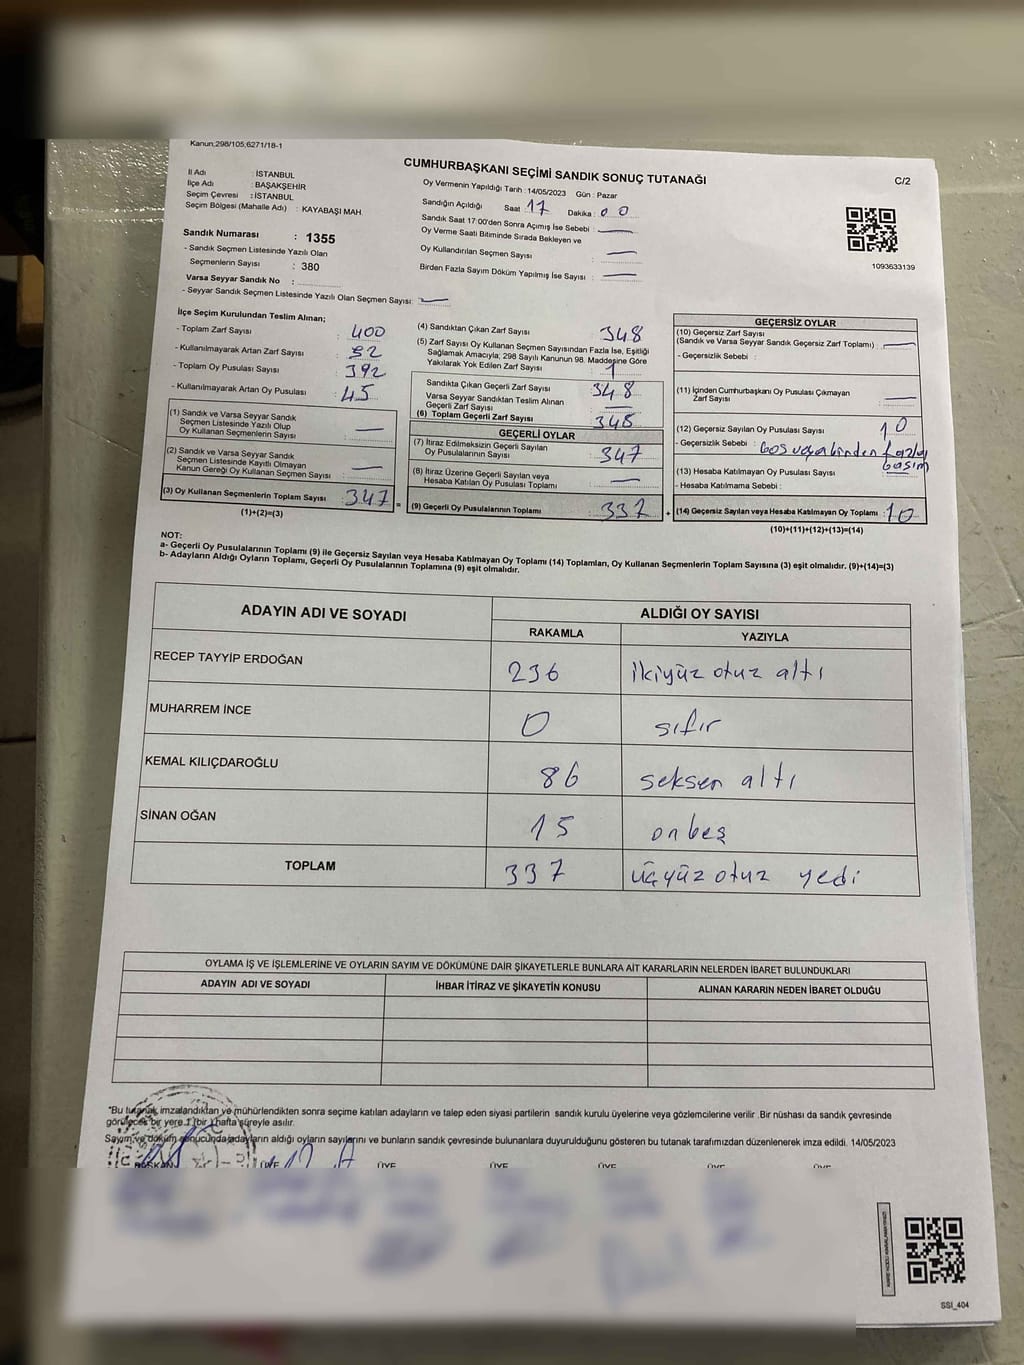 Kanun;298/105;6271/18-1
CUMHURBAŞKANI SEÇİMİ SANDIK SONUÇ TUTANAĞI
C/2
İl Adı : İSTANBUL
İlçe Adı : BAŞAKŞEHİR
Seçim Çevresi : İSTANBUL
Seçim Bölgesi (Mahalle Adı) : KAYABAŞI MAH.
Oy Vermenin Yapıldığı Tarih : 14/05/2023 Gün : Pazar
Sandığın Açıldığı Saat 17 Dakika : 00
Sandık Saat 17:00'den Sonra Açımış İse Sebebi : —
Oy Verme Saati Bitiminde Sırada Bekleyen ve
Oy Kullandırılan Seçmen Sayısı : —
Birden Fazla Sayım Döküm Yapılmış İse Sayısı : —
1093633139
Sandık Numarası : 1355
- Sandık Seçmen Listesinde Yazılı Olan
Seçmenlerin Sayısı : 380
Varsa Seyyar Sandık No :
- Seyyar Sandık Seçmen Listesinde Yazılı Olan Seçmen Sayısı: —
İlçe Seçim Kurulundan Teslim Alınan;
- Toplam Zarf Sayısı : 400
- Kullanılmayarak Artan Zarf Sayısı : 52
- Toplam Oy Pusulası Sayısı : 392
- Kullanılmayarak Artan Oy Pusulası : 45
(1) Sandık ve Varsa Seyyar Sandık
Seçmen Listesinde Yazılı Olup
Oy Kullanan Seçmenlerin Sayısı : —
(2) Sandık ve Varsa Seyyar Sandık
Seçmen Listesinde Kayıtlı Olmayan
Kanun Gereği Oy Kullanan Seçmen Sayısı : —
(3) Oy Kullanan Seçmenlerin Toplam Sayısı : 347 =
(1)+(2)=(3)
(4) Sandıktan Çıkan Zarf Sayısı : 348
(5) Zarf Sayısı Oy Kullanan Seçmen Sayısından Fazla İse, Eşitliği
Sağlamak Amacıyla; 298 Sayılı Kanunun 98. Maddesine Göre
Yakılarak Yok Edilen Zarf Sayısı : 1
Sandıkta Çıkan Geçerli Zarf Sayısı : 348
Varsa Seyyar Sandıktan Teslim Alınan
Geçerli Zarf Sayısı : —
(6) Toplam Geçerli Zarf Sayısı : 348
GEÇERLİ OYLAR
(7) İtiraz Edilmeksizin Geçerli Sayılan
Oy Pusulalarının Sayısı : 347
(8) İtiraz Üzerine Geçerli Sayılan veya
Hesaba Katılan Oy Pusulası Toplamı : —
(9) Geçerli Oy Pusulalarının Toplamı : 337 +
GEÇERSİZ OYLAR
(10) Geçersiz Zarf Sayısı
(Sandık ve Varsa Seyyar Sandık Geçersiz Zarf Toplamı) : —
- Geçersizlik Sebebi :
(11) İçinden Cumhurbaşkanı Oy Pusulası Çıkmayan
Zarf Sayısı : —
(12) Geçersiz Sayılan Oy Pusulası Sayısı : 10
- Geçersizlik Sebebi : boş veya birden fazla
basım
(13) Hesaba Katılmayan Oy Pusulası Sayısı :
- Hesaba Katılmama Sebebi :
(14) Geçersiz Sayılan veya Hesaba Katılmayan Oy Toplamı : 10
(10)+(11)+(12)+(13)=(14)
NOT:
a- Geçerli Oy Pusulalarının Toplamı (9) ile Geçersiz Sayılan veya Hesaba Katılmayan Oy Toplamı (14) Toplamları, Oy Kullanan Seçmenlerin Toplam Sayısına (3) eşit olmalıdır. (9)+(14)=(3)
b- Adayların Aldığı Oyların Toplamı, Geçerli Oy Pusulalarının Toplamına (9) eşit olmalıdır.
ADAYIN ADI VE SOYADI ALDIĞI OY SAYISI
RAKAMLA YAZIYLA
RECEP TAYYİP ERDOĞAN 236 ikiyüz otuz altı
MUHARREM İNCE 0 sıfır
KEMAL KILIÇDAROĞLU 86 seksen altı
SİNAN OĞAN 15 onbeş
TOPLAM 337 üçyüz otuz yedi
OYLAMA İŞ VE İŞLEMLERİNE VE OYLARIN SAYIM VE DÖKÜMÜNE DAİR ŞİKAYETLERLE BUNLARA AİT KARARLARIN NELERDEN İBARET BULUNDUKLARI
ADAYIN ADI VE SOYADI İHBAR İTİRAZ VE ŞİKAYETİN KONUSU ALINAN KARARIN NEDEN İBARET OLDUĞU
"Bu tutanak imzalandıktan ve mühürlendikten sonra seçime katılan adayların ve talep eden siyasi partilerin sandık kurulu üyelerine veya gözlemcilerine verilir .Bir nüshası da sandık çevresinde
görülecek bir yere 1 (bir ) hafta süreyle asılır.
Sayım ve döküm sonucunda adayların aldığı oyların sayılarını ve bunların sandık çevresinde bulunanlara duyurulduğunu gösteren bu tutanak tarafımızdan düzenlenerek imza edildi. 14/05/2023
BAŞKAN ÜYE ÜYE ÜYE ÜYE ÜYE ÜYE
SSI_404